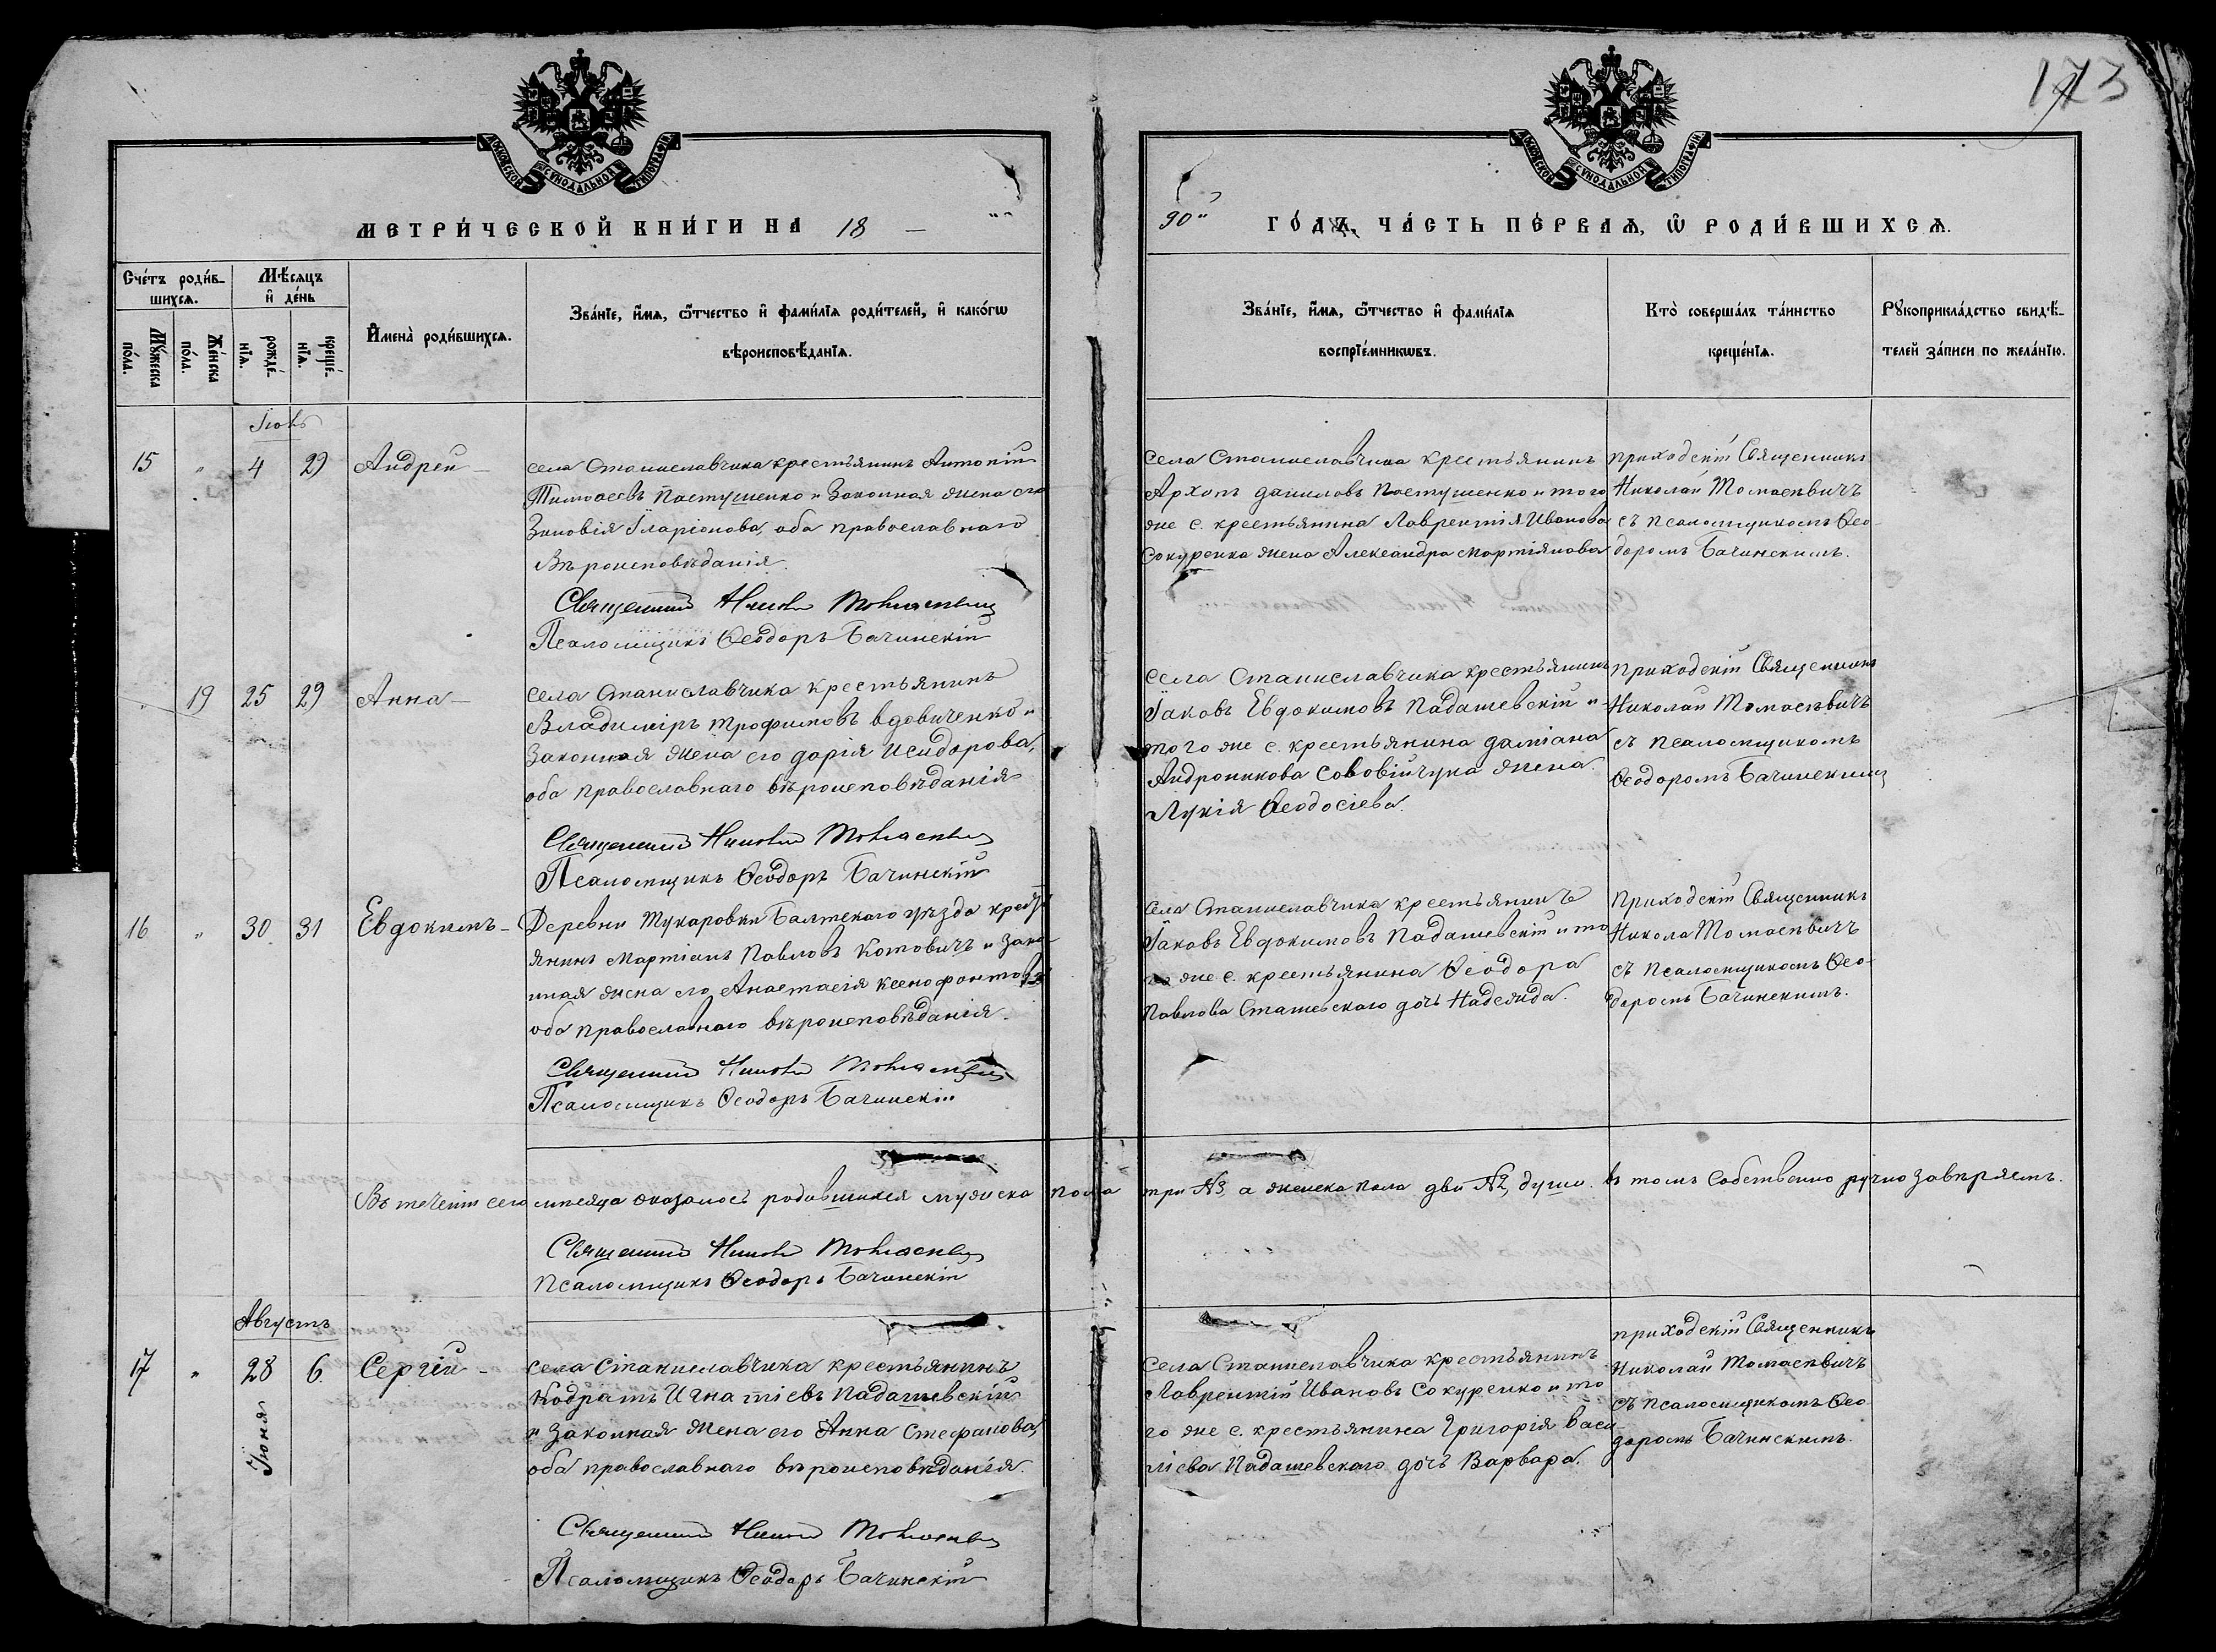 173
МОСКОВСКОЙ СѴНОДАЛЬНОЙ ТИПОГРАФІИ
МОСКОВСКОЙ СѴНОДАЛЬНОЙ ТИПОГРАФІИ
МЕТРИ́ЧЕСКОЙ КНИ́ГИ НА 18 — „„
90„ ГО́ДЪ, ЧА́СТЬ ПЕ́РВАѦ, Ѡ҆ РОДИ́ВШИХСѦ.
Сче́тъ роди́в-
шихсѧ.
Мѣ́сѧцъ
и҆ де́нь
Мꙋ́жеска
по́ла.
Же́нска
по́ла.
рожде́-
нїѧ.
креще́-
нїѧ.
И҆мена̀ роди́вшихсѧ.
Зва́нїе, и҆́мѧ, ѻ҆́тчество и҆ фами́лїѧ роди́телей, и҆ како́гѡ
вѣроисповѣ́данїѧ.
Зва́нїе, и҆́мѧ, ѻ҆́тчество и҆ фами́лїѧ
воспрїе́мникѡвъ.
Кто̀ соверша́лъ та́инство
креще́нїѧ.
Рꙋкоприкла́дство свидѣ́-
телей за́писи по жела́нїю.
15 „ 4 29 Андрей —
села Станиславчика крестьянинъ Антоній
Тимоѳеевъ Пастушенко и Законная жена его
Зиновія Иларіонова, оба православнаго
Вѣроисповѣданія.
Священникъ Николай Томасевич
Псаломщикъ Ѳеодоръ Бачинскій
Села Станиславчика крестьянинъ
Архопъ Даниловъ Пастушенко и того
же с. крестьянина Лаврентія Иванова
Сокуренка жена Александра Мартіянова
приходскій Священникъ
Николай Томасевичъ
съ псаломщикомъ Ѳео-
доромъ Бачинскимъ.
„ 19 25 29 Анна —
села Станиславчика крестьянинъ
Владиміръ Трофимовъ Вдовиченко и
Законная жена его Дарія Исидорова,
оба православнаго вѣроисповѣданія
Священникъ Николай Томасевич
Псаломщикъ Ѳеодоръ Бачинскій
Села Станиславчика крестьянинъ
Іаковъ Евдокимовъ Падашевскій и
того же с. крестьянина Даміана
Андроникова Соловійчука жена
Лукія Ѳеодосіева.
Приходскій Священникъ
Николай Томасевичъ
съ псаломщикомъ
Ѳеодоромъ Бачинским
16 „ 30 31 Евдокимъ —
Деревни Тукаровки Балтскаго уѣзда кресть
янинъ Мартіанъ Павловъ Котовичъ и зако
нная жена его Анастасія Ксенофонтова
оба православнаго вѣроисповѣданія.
Священникъ Николай Томасевич
Псаломщикъ Ѳеодоръ Бачинскій
Села Станиславчика крестьянинъ
Іаковъ Евдокимовъ Падашевскій и то
го же с. крестьянина Ѳеодора
Павлова Сташевскаго дочь Надежда.
Приходскій Священникъ
Никола Томасевичъ
съ псаломщикомъ Ѳео-
доромъ Бачинскимъ.
Въ теченіи сего мѣсяца оказалось родившихся мужска пола три №3, а женска пола двѣ №2, душъ. въ томъ собственно ручно завѣряемъ.
Священникъ Николай Томасевич
Псаломщикъ Ѳеодоръ Бачинскій
Августъ
17 „ 28 6 Сергій —
Іюня
села Станиславчика крестьянинъ
Кодратъ Игнатіевъ Падашевскій
и законная жена его Анна Стефанова,
оба православнаго вѣроисповѣданія.
Священникъ Николай Томасевич
Псаломщикъ Ѳеодоръ Бачинскій
Села Станиславчика крестьянинъ
Лаврентій Ивановъ Сокуренко и то
го же с. крестьянина Григорія Васи
ліева Падашевскаго дочь Варвара.
приходскій Священникъ
Николай Томасевичъ
съ псаломщикомъ Ѳео
доромъ Бачинскимъ.